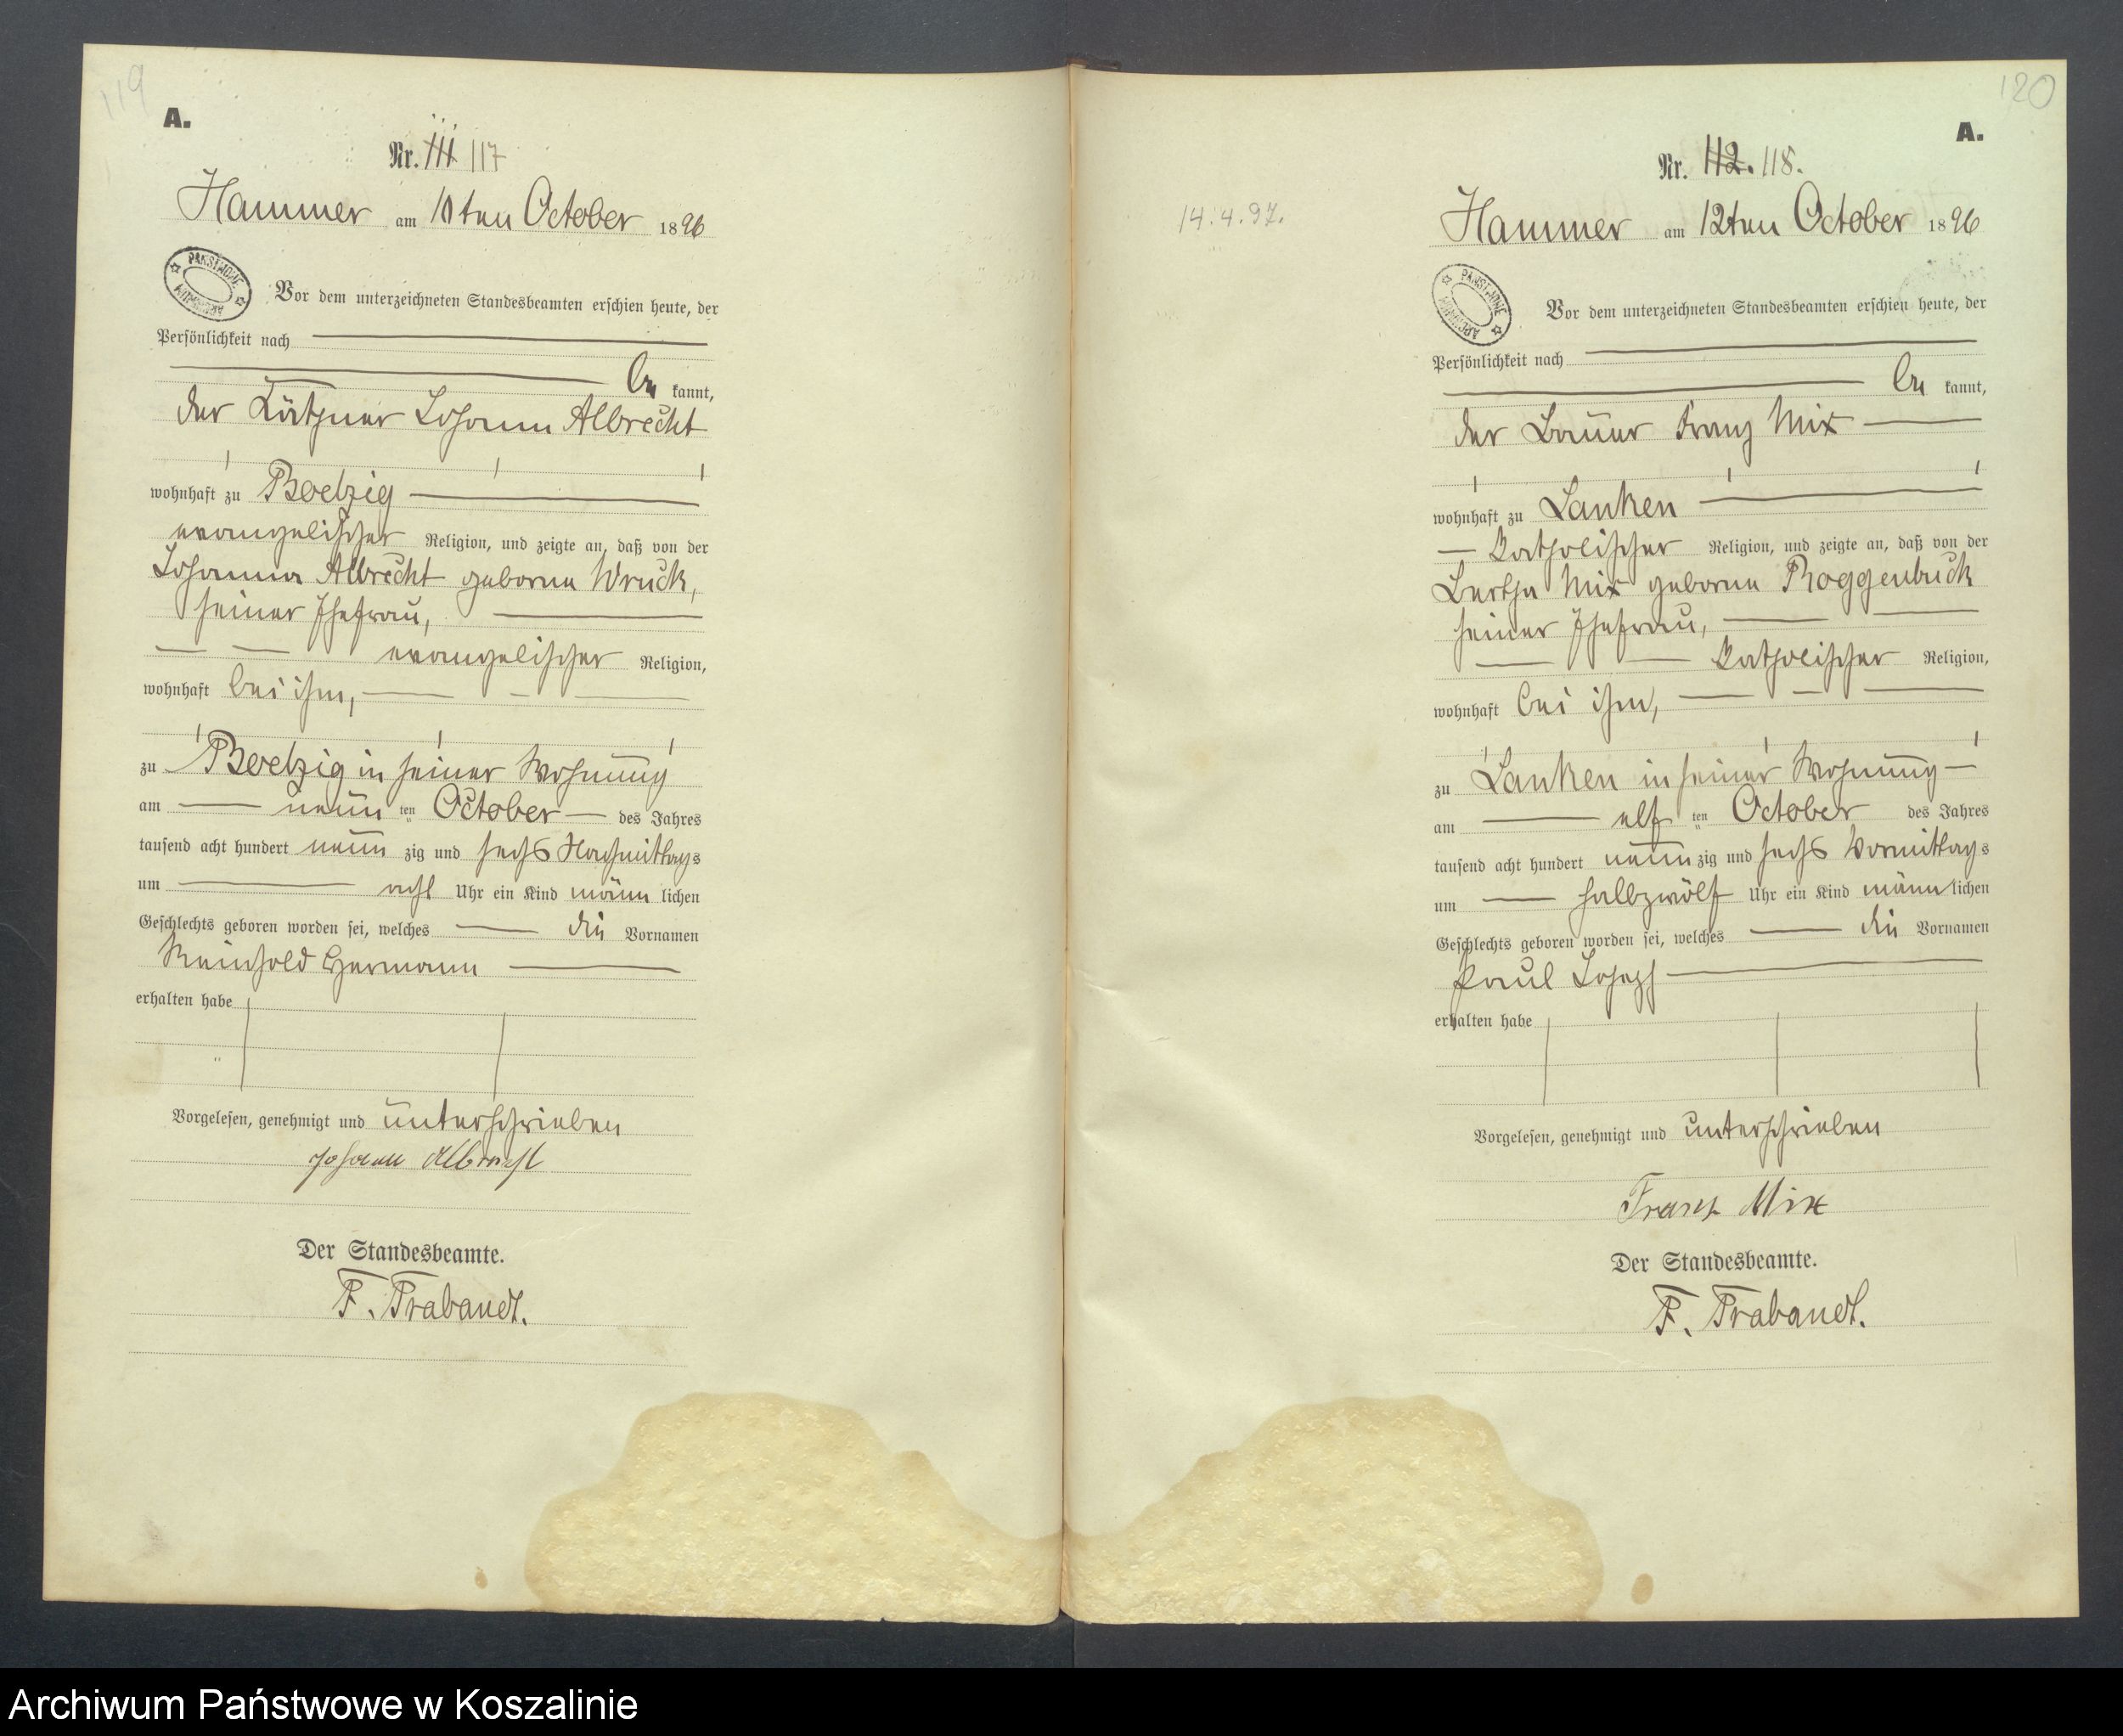 119
A.
Nr. 111 117
Hammer am 10ten October 1896
PAŃSTWOWE ARCHIWUM
Vor dem unterzeichneten Standesbeamten erschien heute, der
Persönlichkeit nach
be kannt,
der Käthner Johann Albrecht
wohnhaft zu Boelzig
evangelischer Religion, und zeigte an, daß von der
Johanna Albrecht geborne Wruck,
seiner Ehefrau,
evangelischer Religion,
wohnhaft bei ihm,
zu Boelzig in seiner Wohnung
am neun ten October des Jahres
tausend acht hundert neun zig und sechs Nachmittags
um acht Uhr ein Kind männ lichen
Geschlechts geboren worden sei, welches die Vornamen
Reinhold Hermann
erhalten habe
Vorgelesen, genehmigt und unterschrieben
Johann Albrecht
Der Standesbeamte.
F. Trabandt.
120
A.
Nr. 112. 118.
14.4.97.
Hammer am 12ten October 1896
PAŃSTWOWE ARCHIWUM
Vor dem unterzeichneten Standesbeamten erschien heute, der
Persönlichkeit nach
be kannt,
der Bauer Franz Mix
wohnhaft zu Lanken
katholischer Religion, und zeigte an, daß von der
Bertha Mix geborne Roggenbuck
seiner Ehefrau,
katholischer Religion,
wohnhaft bei ihm,
zu Lanken in seiner Wohnung
am elf ten October des Jahres
tausend acht hundert neun zig und sechs Vormittags
um halbzwölf Uhr ein Kind männ lichen
Geschlechts geboren worden sei, welches die Vornamen
Paul Joseph
erhalten habe
Vorgelesen, genehmigt und unterschrieben
Franz Mix
Der Standesbeamte.
F. Trabandt.
Archiwum Państwowe w Koszalinie